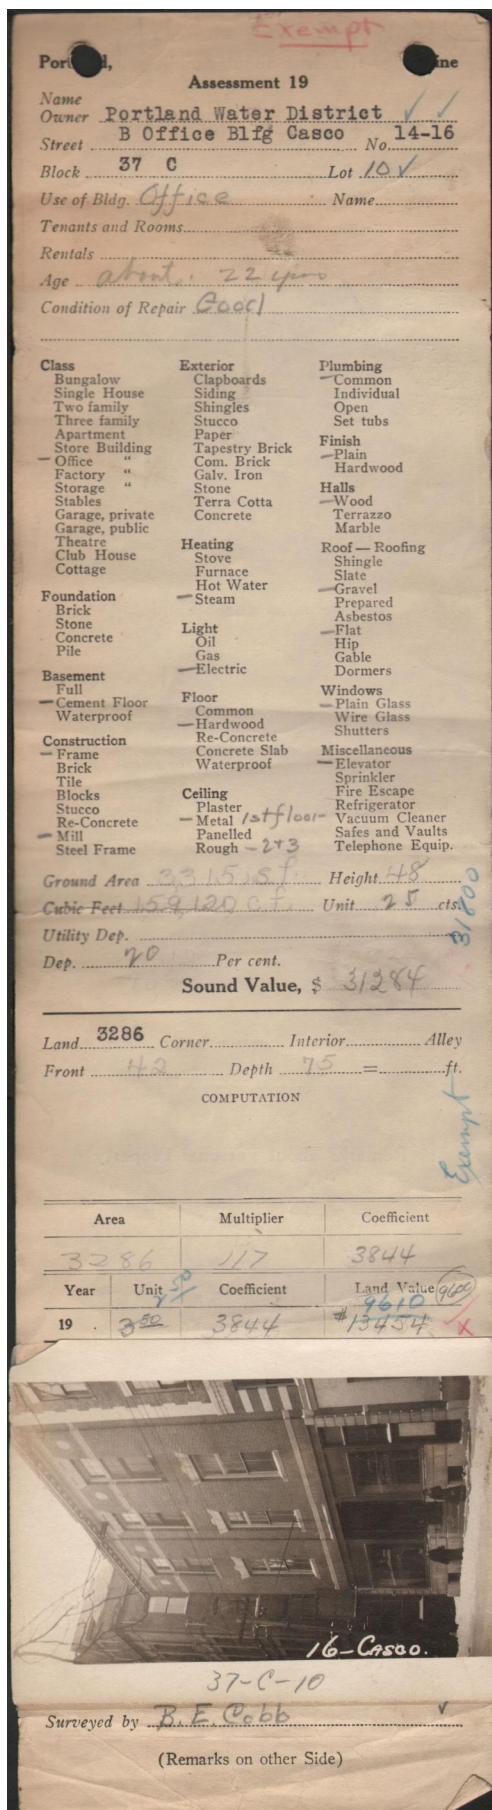 Exempt
Portland, Maine
Assessment 19
Name
Owner Portland Water District
Street B Office Blfg Casco No. 14-16
Block 37 C Lot 10
Use of Bldg. Office Name
Tenants and Rooms
Rentals
Age about 22 yrs
Condition of Repair Good
Class
Bungalow
Single House
Two family
Three family
Apartment
Store Building
Office "
Factory "
Storage "
Stables
Garage, private
Garage, public
Theatre
Club House
Cottage
Foundation
Brick
Stone
Concrete
Pile
Basement
Full
Cement Floor
Waterproof
Construction
Frame
Brick
Tile
Blocks
Stucco
Re-Concrete
Mill
Steel Frame
Exterior
Clapboards
Siding
Shingles
Stucco
Paper
Tapestry Brick
Com. Brick
Galv. Iron
Stone
Terra Cotta
Concrete
Heating
Stove
Furnace
Hot Water
Steam
Light
Oil
Gas
Electric
Floor
Common
Hardwood
Re-Concrete
Concrete Slab
Waterproof
Ceiling
Plaster
Metal 1st floor
Panelled
Rough - 2+3
Plumbing
Common
Individual
Open
Set tubs
Finish
Plain
Hardwood
Halls
Wood
Terrazzo
Marble
Roof — Roofing
Shingle
Slate
Gravel
Prepared
Asbestos
Flat
Hip
Gable
Dormers
Windows
Plain Glass
Wire Glass
Shutters
Miscellaneous
Elevator
Sprinkler
Fire Escape
Refrigerator
Vacuum Cleaner
Safes and Vaults
Telephone Equip.
Ground Area 3315 s.f. Height 48
Cubic Feet 159120 c.f. Unit 25 cts.
31800
Utility Dep.
Dep. 20 Per cent.
Sound Value, $ 31284
Land 3286 Corner Interior Alley
Front 42 Depth 75 = ft.
COMPUTATION
Exempt
Area Multiplier Coefficient
3286 117 3844
Year Unit Coefficient Land Value 9600
2 50 9610
19 3 50 3844 # 13454 x
16-CASCO.
37-C-10
Surveyed by B.E. Cobb
(Remarks on other Side)